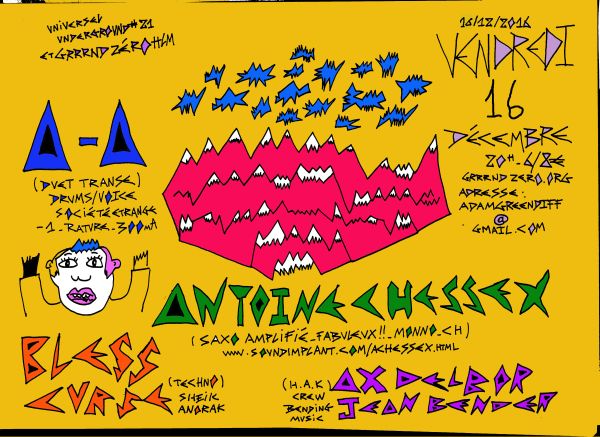 UNIVERSEL
UNDERGROUND# 21
ET GRRRND ZÉRO HLM
16/12/2016
VENDREDI
16
DÉCEMBRE
20H_6/8€
GRRRNDZERO.ORG
ADRESSE:
ADAMGREENDIFF
@
GMAIL.COM
A-A
(DUET TRANSE)
DRUMS/VOICE
SOCIÉTÉ ETRANGE
-1_RATURE_300MA
ANTOINE CHESSEX
(SAXO AMPLIFIÉ_FABULEUX!!_MONNO_CH)
WWW.SOUNDIMPLANT.COM/ACHESSEX.HTML
BLESS
CURSE
(TECHNO)
SHEIK
ANORAK
(H.A.K)
CREW
BENDING
MUSIC
AX DELBOR
JEAN BENDER